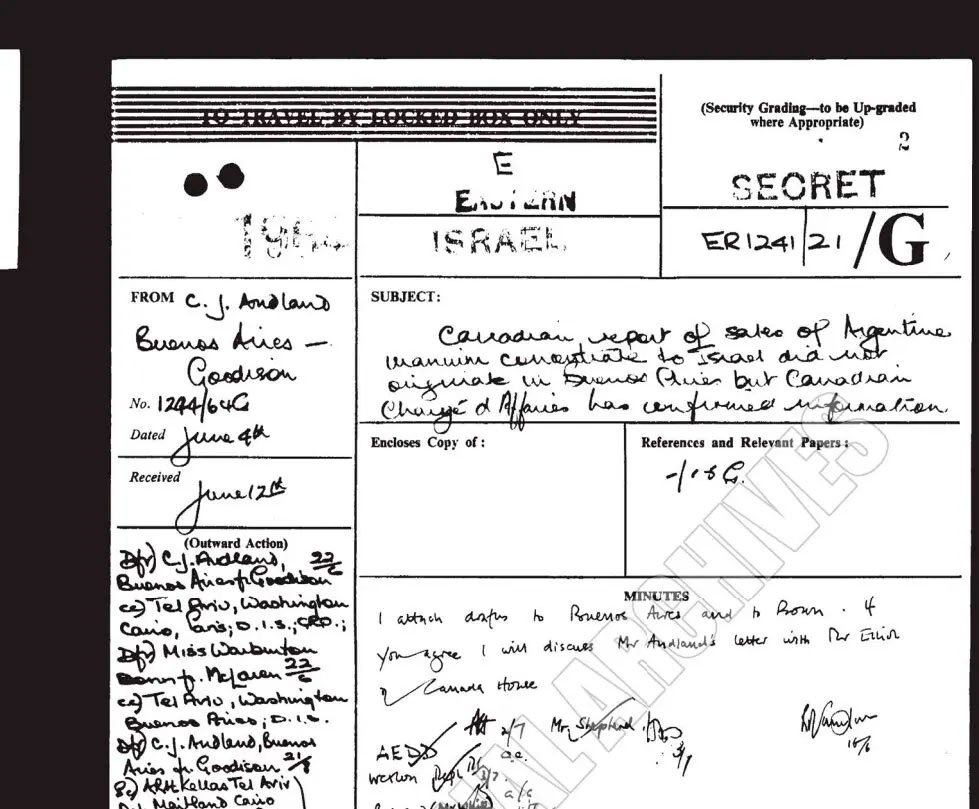 TO TRAVEL BY LOCKED BOX ONLY
(Security Grading—to be Up-graded
where Appropriate)
2
SECRET
E
EASTERN
ISRAEL
ER1241/21/G
FROM C. J. Audland
Buenos Aires —
Goodison
No. 1244/64G
Dated June 4th
Received June 12th
SUBJECT:
Canadian report of sales of Argentine
uranium concentrate to Israel did not
originate in Buenos Aires but Canadian
Chargé d'Affaires has confirmed information
Encloses Copy of :
References and Relevant Papers :
-/18G.
(Outward Action)
Dft) C.J. Audland, 22/6
Buenos Aires f. Goodison
cc) Tel Aviv, Washington
Cairo, Paris; D.I.S.;
Dft) Miss Warburton
Bonn f. McLaren 22/6
cc) Tel Aviv, Washington
Buenos Aires; D.I.S.
Dft) C.J. Audland, Buenos
Aires fr. Goodison 21/8
Tel Aviv
Maitland Cairo
MINUTES
I attach drafts to Buenos Aires and to Bonn. If
you agree I will discuss Mr Audland's letter with Mr
of Canada House
2/7
Mr Shepherd
AEDD
15/6
NAL ARCHIVES